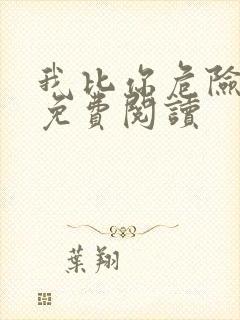 我比你危險
免費閱讀
葉翔